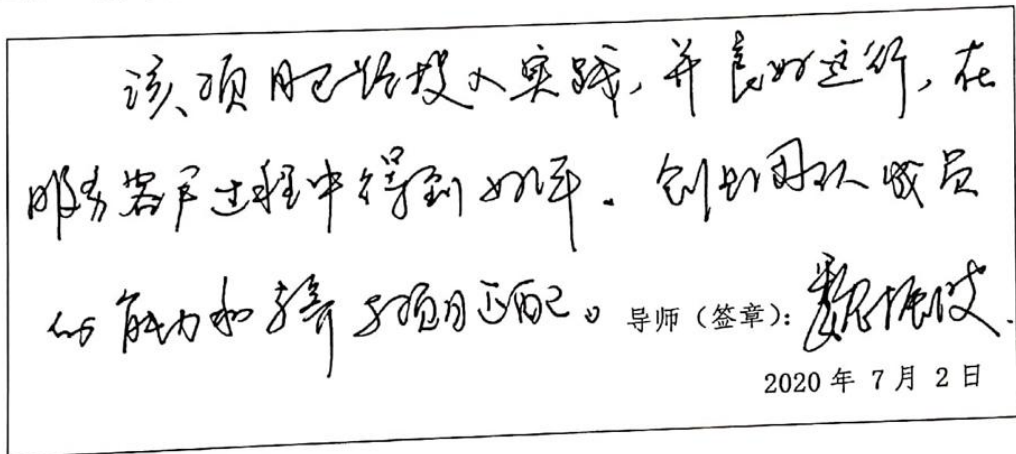 该项目已经投入实践,并良好运行,在
服务客户过程中得到好评。创业团队成员
的能力和专长与项目匹配。导师(签章):魏振波
2020 年 7 月 2 日